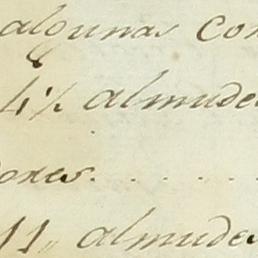 algunas con
4½ almude
dores . . . . . .
11,, almude